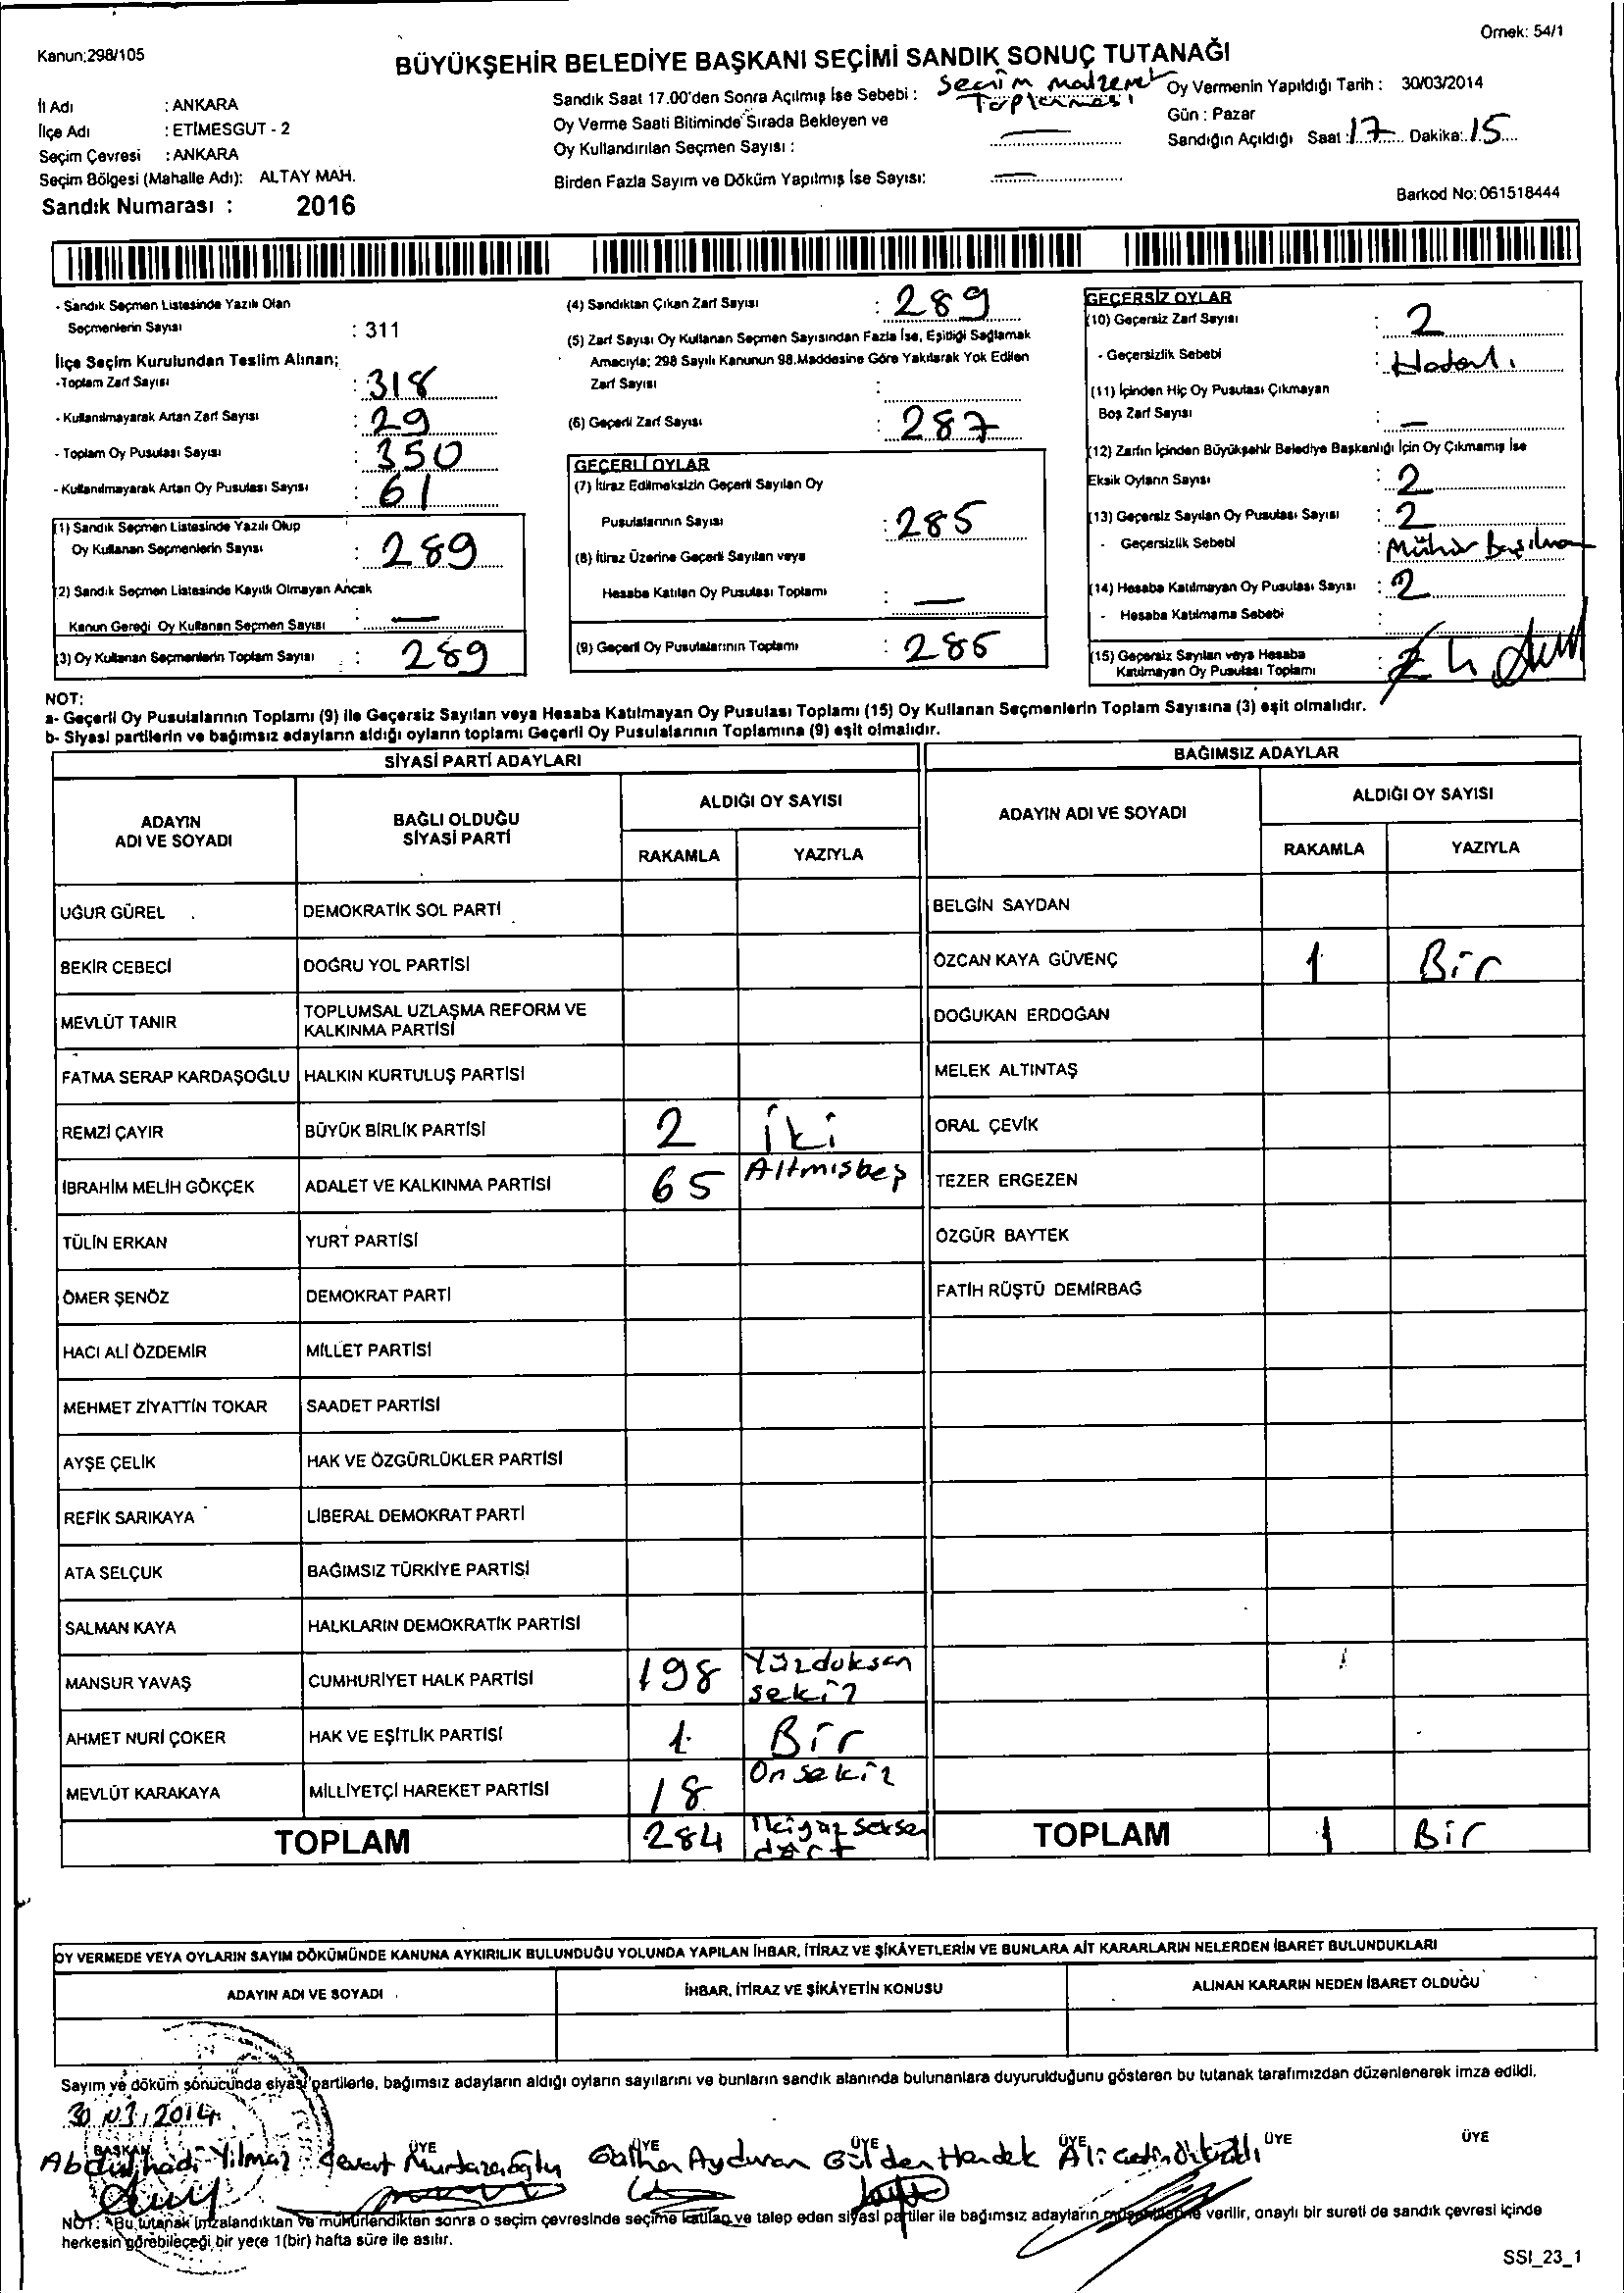 Kanun:298/105
Örnek: 54/1
BÜYÜKŞEHİR BELEDİYE BAŞKANI SEÇİMİ SANDIK SONUÇ TUTANAĞI
İl Adı : ANKARA
İlçe Adı : ETİMESGUT - 2
Seçim Çevresi : ANKARA
Seçim Bölgesi (Mahalle Adı): ALTAY MAH.
Sandık Numarası : 2016
Sandık Saat 17.00'den Sonra Açılmış İse Sebebi : Seçim malzeme Toplanması
Oy Verme Saati Bitiminde Sırada Bekleyen ve
Oy Kullandırılan Seçmen Sayısı : —
Birden Fazla Sayım ve Döküm Yapılmış İse Sayısı: —
Oy Vermenin Yapıldığı Tarih : 30/03/2014
Gün : Pazar
Sandığın Açıldığı Saat : 17 Dakika: 15
Barkod No: 061518444
- Sandık Seçmen Listesinde Yazılı Olan
Seçmenlerin Sayısı : 311
İlçe Seçim Kurulundan Teslim Alınan;
-Toplam Zarf Sayısı : 318
- Kullanılmayarak Artan Zarf Sayısı : 29
- Toplam Oy Pusulası Sayısı : 350
- Kullanılmayarak Artan Oy Pusulası Sayısı : 61
(1) Sandık Seçmen Listesinde Yazılı Olup
Oy Kullanan Seçmenlerin Sayısı : 289
(2) Sandık Seçmen Listesinde Kayıtlı Olmayan Ancak
Kanun Gereği Oy Kullanan Seçmen Sayısı : —
(3) Oy Kullanan Seçmenlerin Toplam Sayısı : 289
(4) Sandıktan Çıkan Zarf Sayısı : 289
(5) Zarf Sayısı Oy Kullanan Seçmen Sayısından Fazla İse, Eşitliği Sağlamak
Amacıyla; 298 Sayılı Kanunun 98.Maddesine Göre Yakılarak Yok Edilen
Zarf Sayısı :
(6) Geçerli Zarf Sayısı : 287
GEÇERLİ OYLAR
(7) İtiraz Edilmeksizin Geçerli Sayılan Oy
Pusulalarının Sayısı : 285
(8) İtiraz Üzerine Geçerli Sayılan veya
Hesaba Katılan Oy Pusulası Toplamı : —
(9) Geçerli Oy Pusulalarının Toplamı : 285
GEÇERSİZ OYLAR
(10) Geçersiz Zarf Sayısı : 2
- Geçersizlik Sebebi : Hatalı
(11) İçinden Hiç Oy Pusulası Çıkmayan
Boş Zarf Sayısı : —
(12) Zarfın İçinden Büyükşehir Belediye Başkanlığı İçin Oy Çıkmamış İse
Eksik Oyların Sayısı : 2
(13) Geçersiz Sayılan Oy Pusulası Sayısı : 2
- Geçersizlik Sebebi : Mühür
(14) Hesaba Katılmayan Oy Pusulası Sayısı : 2
- Hesaba Katılmama Sebebi :
(15) Geçersiz Sayılan veya Hesaba
Katılmayan Oy Pusulası Toplamı : 4
NOT:
a- Geçerli Oy Pusulalarının Toplamı (9) ile Geçersiz Sayılan veya Hesaba Katılmayan Oy Pusulası Toplamı (15) Oy Kullanan Seçmenlerin Toplam Sayısına (3) eşit olmalıdır.
b- Siyasi partilerin ve bağımsız adayların aldığı oyların toplamı Geçerli Oy Pusulalarının Toplamına (9) eşit olmalıdır.
SİYASİ PARTİ ADAYLARI
BAĞIMSIZ ADAYLAR
ADAYIN ADI VE SOYADI
BAĞLI OLDUĞU SİYASİ PARTİ
ALDIĞI OY SAYISI
RAKAMLA YAZIYLA
ADAYIN ADI VE SOYADI
ALDIĞI OY SAYISI
RAKAMLA YAZIYLA
UĞUR GÜREL DEMOKRATİK SOL PARTİ BELGİN SAYDAN
BEKİR CEBECİ DOĞRU YOL PARTİSİ ÖZCAN KAYA GÜVENÇ 1 Bir
MEVLÜT TANIR TOPLUMSAL UZLAŞMA REFORM VE KALKINMA PARTİSİ DOĞUKAN ERDOĞAN
FATMA SERAP KARDAŞOĞLU HALKIN KURTULUŞ PARTİSİ MELEK ALTINTAŞ
REMZİ ÇAYIR BÜYÜK BİRLİK PARTİSİ 2 iki ORAL ÇEVİK
İBRAHİM MELİH GÖKÇEK ADALET VE KALKINMA PARTİSİ 65 Altmisbeş TEZER ERGEZEN
TÜLİN ERKAN YURT PARTİSİ ÖZGÜR BAYTEK
ÖMER ŞENÖZ DEMOKRAT PARTİ FATİH RÜŞTÜ DEMİRBAĞ
HACI ALİ ÖZDEMİR MİLLET PARTİSİ
MEHMET ZİYATTİN TOKAR SAADET PARTİSİ
AYŞE ÇELİK HAK VE ÖZGÜRLÜKLER PARTİSİ
REFİK SARIKAYA LİBERAL DEMOKRAT PARTİ
ATA SELÇUK BAĞIMSIZ TÜRKİYE PARTİSİ
SALMAN KAYA HALKLARIN DEMOKRATİK PARTİSİ
MANSUR YAVAŞ CUMHURİYET HALK PARTİSİ 198 Yüzdoksan sekiz
AHMET NURİ ÇOKER HAK VE EŞİTLİK PARTİSİ 1 Bir
MEVLÜT KARAKAYA MİLLİYETÇİ HAREKET PARTİSİ 18 Onsekiz
TOPLAM 284 ikiyüz seksen dört TOPLAM 1 Bir
OY VERMEDE VEYA OYLARIN SAYIM DÖKÜMÜNDE KANUNA AYKIRILIK BULUNDUĞU YOLUNDA YAPILAN İHBAR, İTİRAZ VE ŞİKÂYETLERİN VE BUNLARA AİT KARARLARIN NELERDEN İBARET BULUNDUKLARI
ADAYIN ADI VE SOYADI İHBAR, İTİRAZ VE ŞİKÂYETİN KONUSU ALINAN KARARIN NEDEN İBARET OLDUĞU
Sayım ve döküm sonucunda siyasi partilerle, bağımsız adayların aldığı oyların sayılarını ve bunların sandık alanında bulunanlara duyurulduğunu gösteren bu tutanak tarafımızdan düzenlenerek imza edildi.
30/03/2014
BAŞKAN ÜYE ÜYE ÜYE ÜYE ÜYE ÜYE
Abdulhadi Yılmaz Cevat Aydunan Gülden Handek Ali
NOT: Bu tutanak imzalandıktan ve mühürlendikten sonra o seçim çevresinde seçime katılan ve talep eden siyasi partiler ile bağımsız adayların müşahitlerine verilir, onaylı bir sureti de sandık çevresi içinde
herkesin görebileceği bir yere 1(bir) hafta süre ile asılır.
SSI_23_1